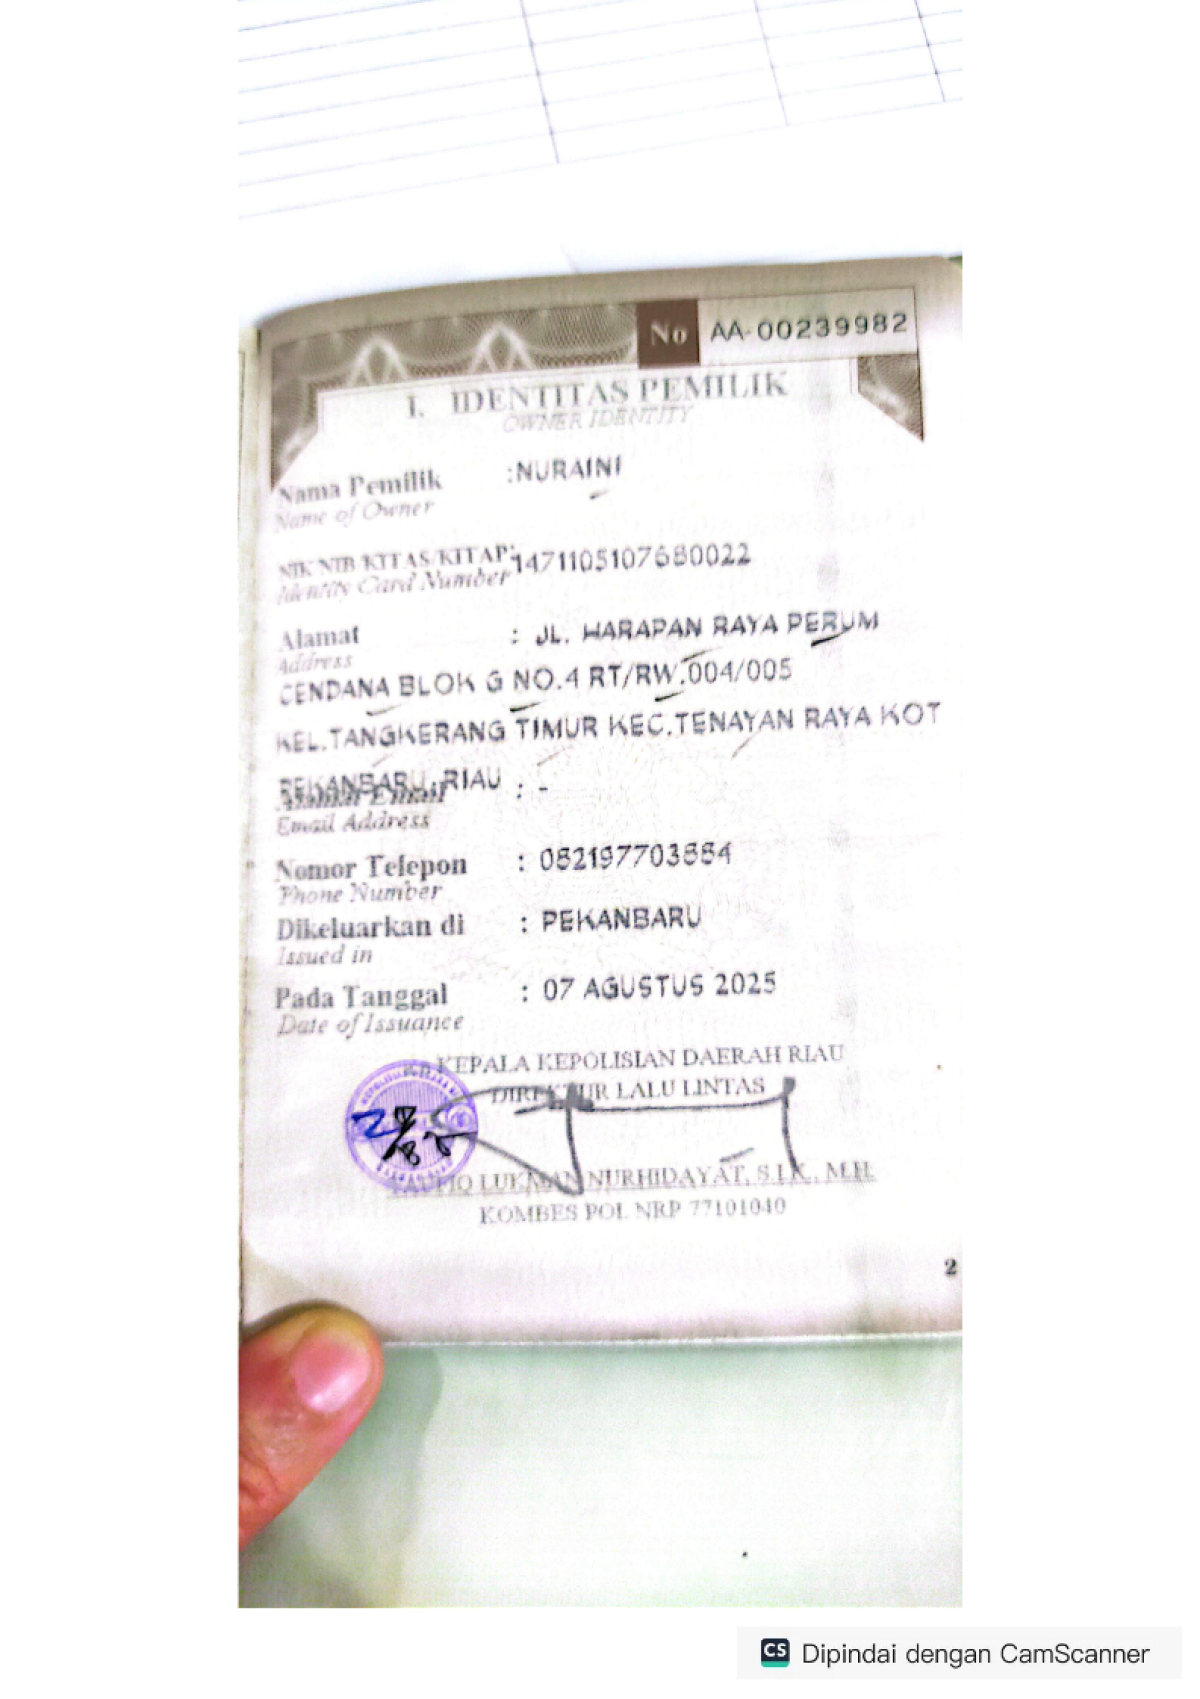 No AA-00239982
I. IDENTITAS PEMILIK
OWNER IDENTITY
Nama Pemilik :NURAINI
Name of Owner
NIK/NIB/KITAS/KITAP: 1471105107680022
Identity Card Number
Alamat : JL. HARAPAN RAYA PERUM
Address
CENDANA BLOK G NO.4 RT/RW.004/005
KEL.TANGKERANG TIMUR KEC.TENAYAN RAYA KOT
PEKANBARU, RIAU
Alamat Email : -
Email Address
Nomor Telepon :
Phone Number
Dikeluarkan di : PEKANBARU
Issued in
Pada Tanggal : 07 AGUSTUS 2025
Date of Issuance
KEPALA KEPOLISIAN DAERAH RIAU
DIREKTUR LALU LINTAS
TAUFIQ LUKMAN NURHIDAYAT, S.I.K., M.H.
KOMBES POL NRP 77101040
2
CS Dipindai dengan CamScanner